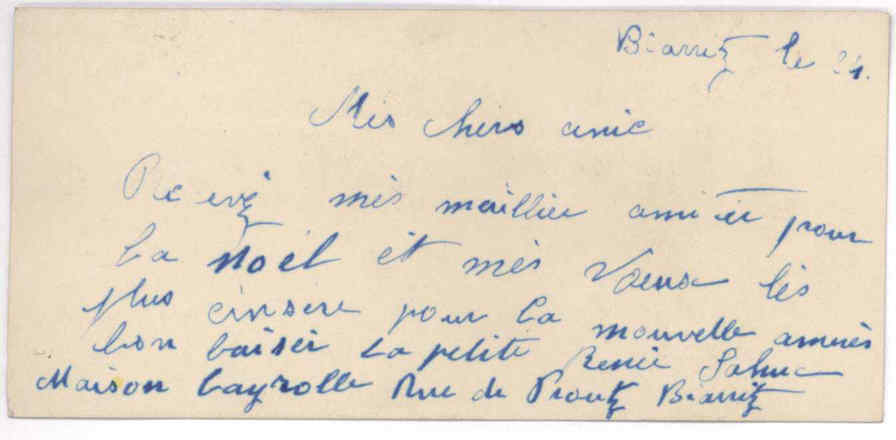 Biarritz le 21.
Mes chers amie
Recevez mès meillieu amitié pour
la Noël èt mès Voeux lès
plus cinsere pour la nouvelle année
bon baiser la petite Renée
Maison Cayrolle Rue de Biarritz